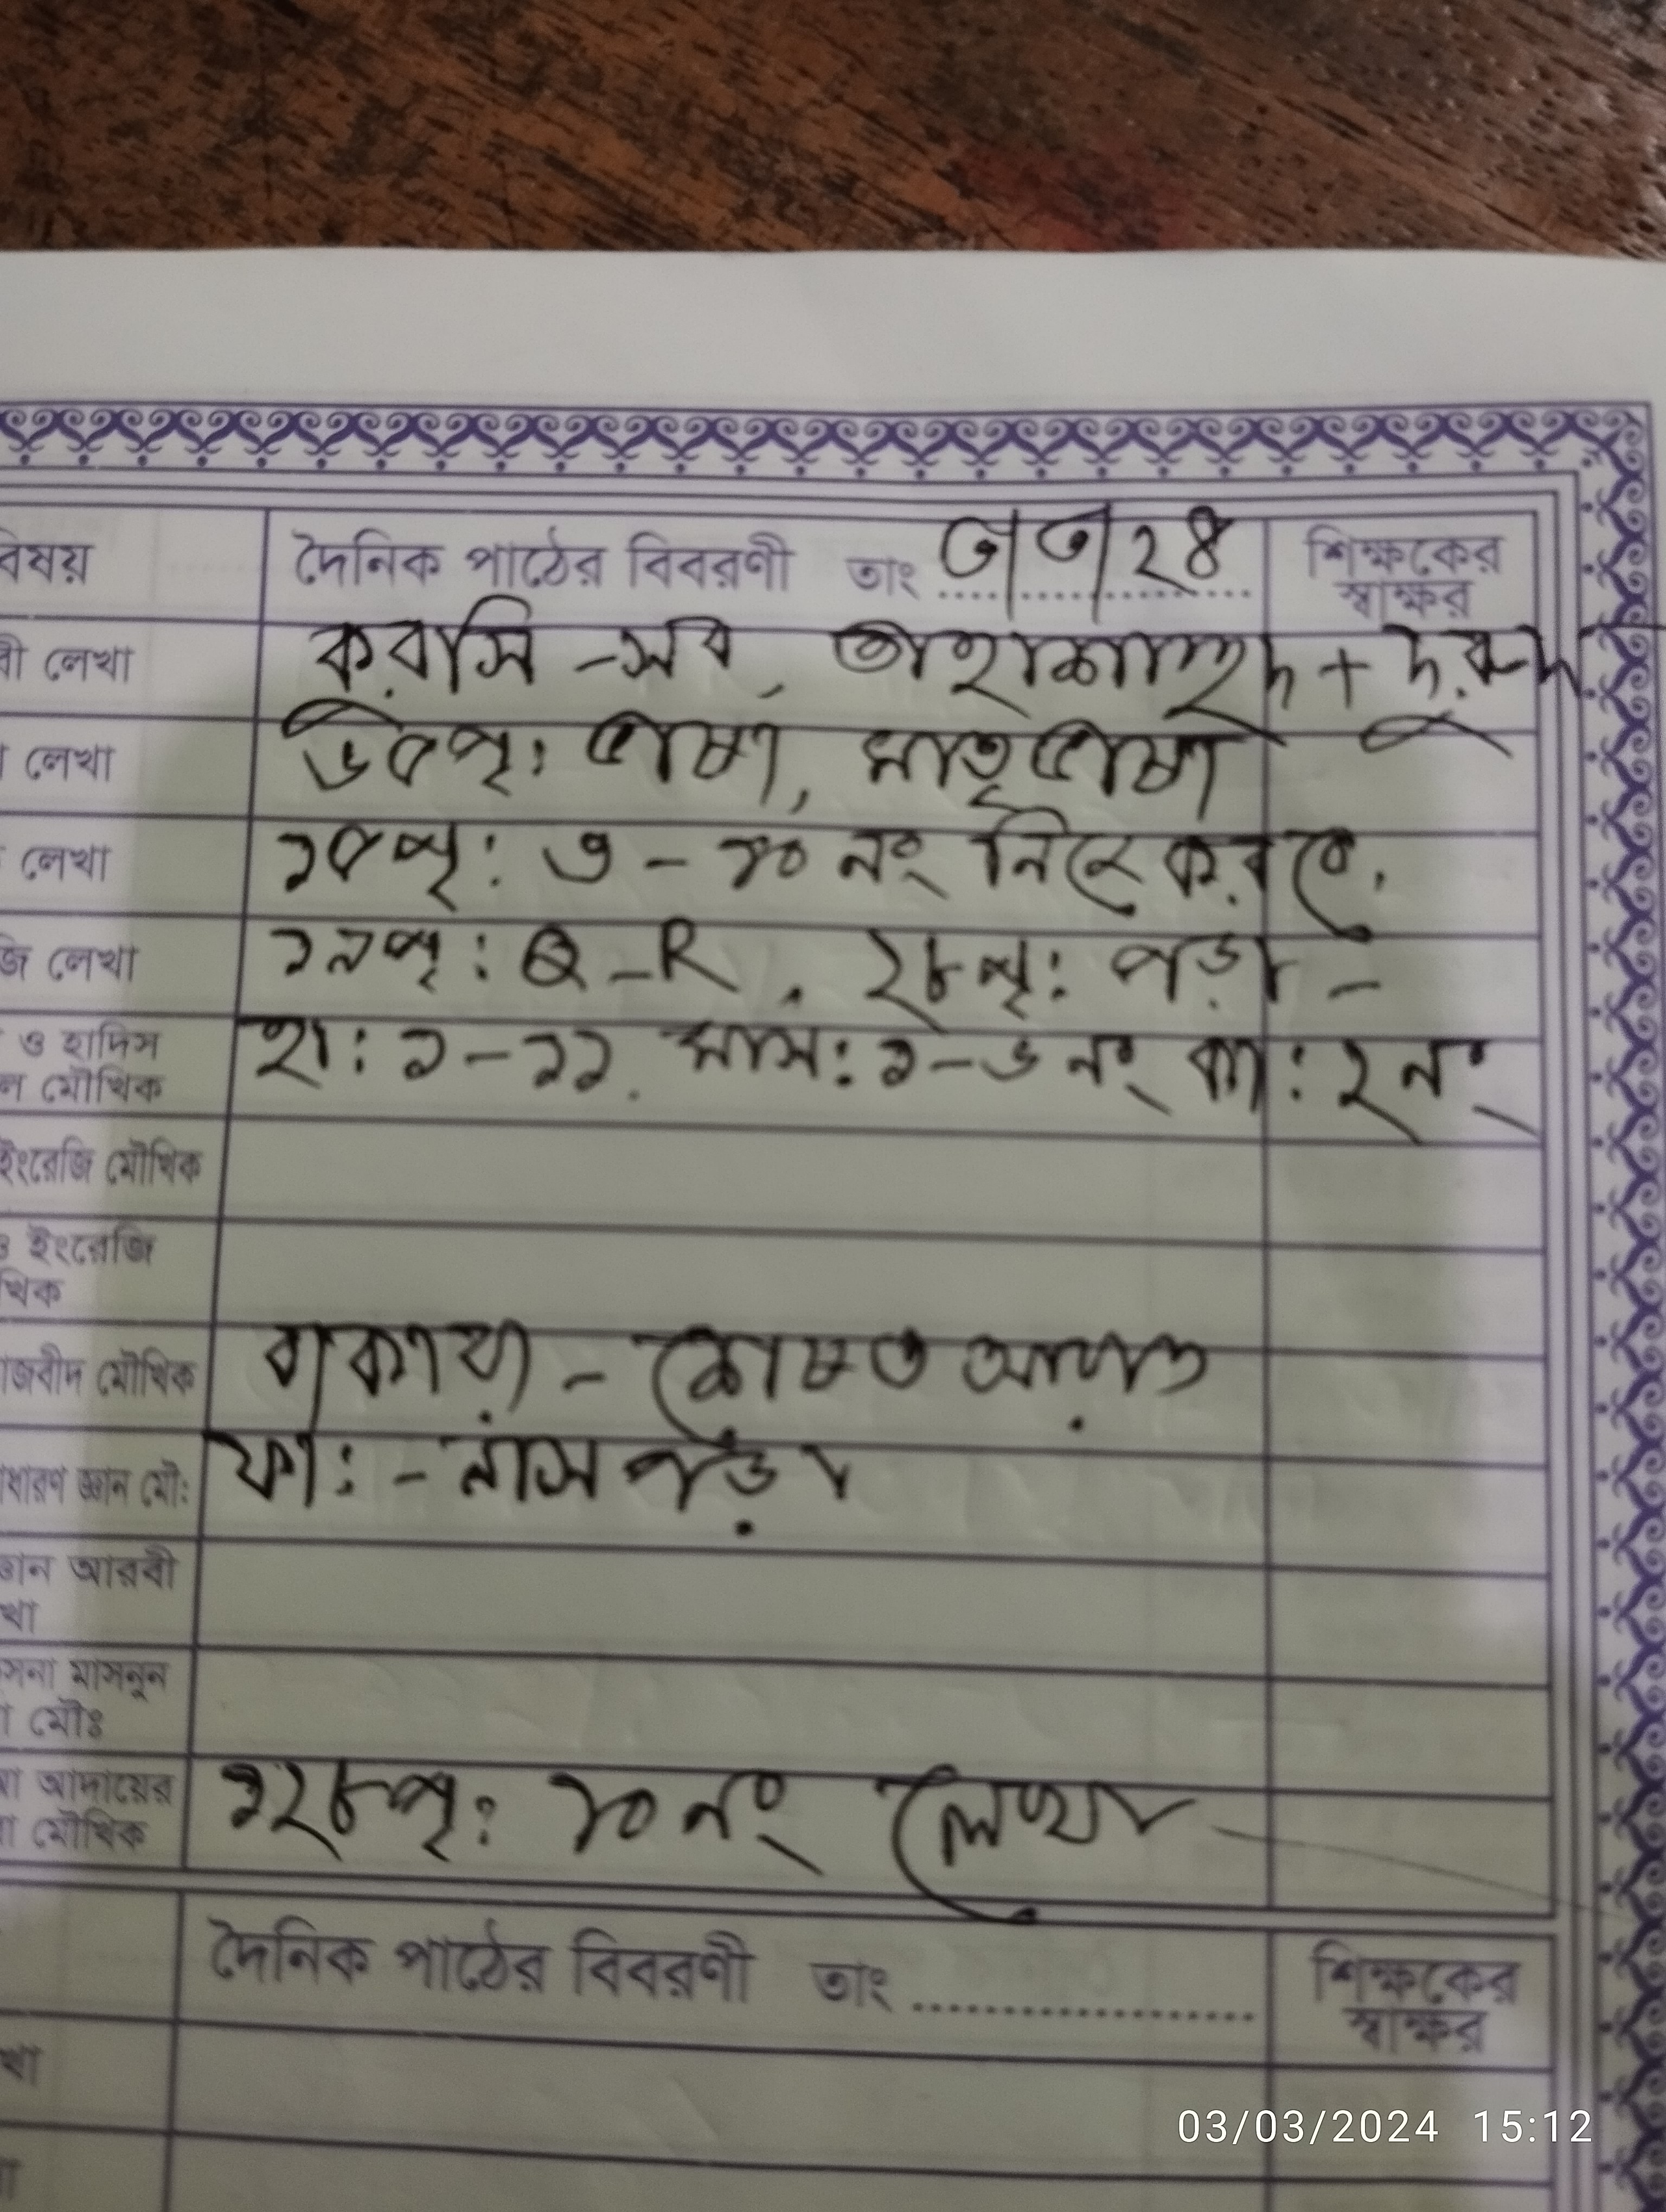 বিষয় দৈনিক পাঠের বিবরণী তাং ৩/৩/২৪ শিক্ষকের স্বাক্ষর
বী লেখা কুরসি - সব, তাশাহহুদ + দুরুদ
লেখা পৃ: ভাষা, মাতৃভাষা
লেখা ১৫পৃ: ৩ - ১০ নং নিজে করবে,
জি লেখা ১৭পৃ: Q - R, ২৮পৃ: পড়া -
ও হাদিস হা: ১ - ১১, মাস: ১ - ৬ নং কা: ২ নং
ল মৌখিক
ইংরেজি মৌখিক
ও ইংরেজি
খিক
াজবীদ মৌখিক বাকারা - শেষ আয়াত
াধারণ জ্ঞান মৌ: ফা: - নাস পড়া
জ্ঞান আরবী
খা
সনা মাসনুন
া মৌঃ
আদায়ের ১২৮পৃ: ১০ নং লেখা
া মৌখিক
দৈনিক পাঠের বিবরণী তাং শিক্ষকের স্বাক্ষর
খা
03/03/2024 15:12